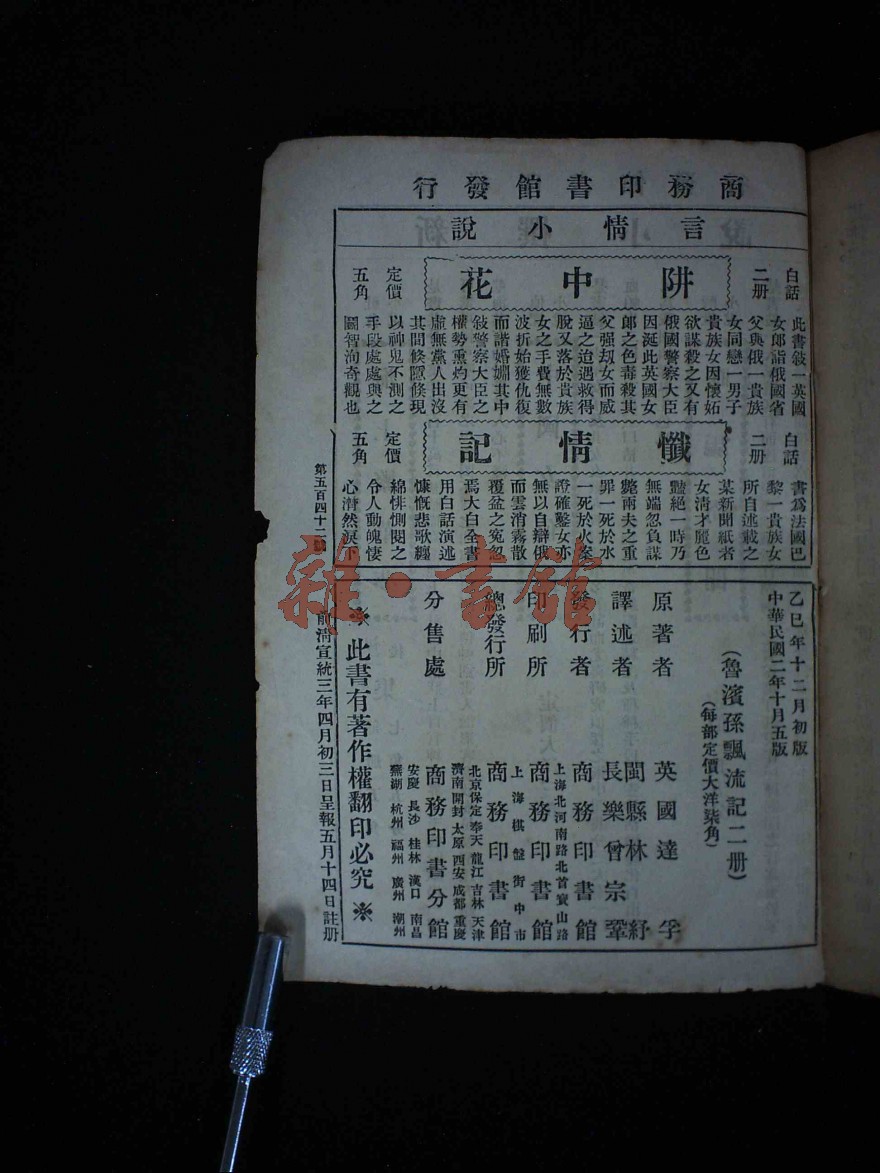 商務印書館發行
言情小說
白話
二册
阱中花
定價
五角
此書敍一英國
女郎詣俄國省
父與俄一貴族
女同戀一男子
貴族女因懷妬
欲謀殺之又有
俄國警察大臣
因涎此英國女
郎之色毒殺其
父强刧女而威
逼之迫遇救得
脫又落於貴族
女之手費無數
波折始獲仇復
而諧婚媾其中
敍警察大臣之
權勢熏灼更有
虛無黨人出沒
其間倏隱倏現
以神鬼不測之
手段處處與之
圖智洵奇觀也
白話
二册
懺情記
定價
五角
書爲法國巴
黎一貴族女
所自述載之
某新聞紙者
女淸才麗色
豔絕一時乃
無端忽負謀
斃兩夫之重
罪一死於水
一死於火案
證確鑿女亦
無以自辯俄
而雲消霧散
覆盆之寃忽
焉大白全書
用白話演述
慷慨悲歌纏
綿悱惻閱之
令人動魄悽
心潸然淚下
第五百四十二號
乙巳年十二月初版
中華民國二年十月五版
(魯濱孫飄流記二册)
(每部定價大洋柒角)
原著者 英國達孚
譯述者 閩縣林紓
長樂曾宗鞏
發行者 商務印書館
上海北河南路北首寶山路
印刷所 商務印書館
上海棋盤街中市
總發行所 商務印書館
北京保定奉天龍江吉林天津
濟南開封太原西安成都重慶
分售處 商務印書分館
安慶長沙桂林漢口南昌
蕪湖杭州福州廣州潮州
※此書有著作權翻印必究※
前淸宣統三年四月初三日呈報五月十四日註册
雜·書館